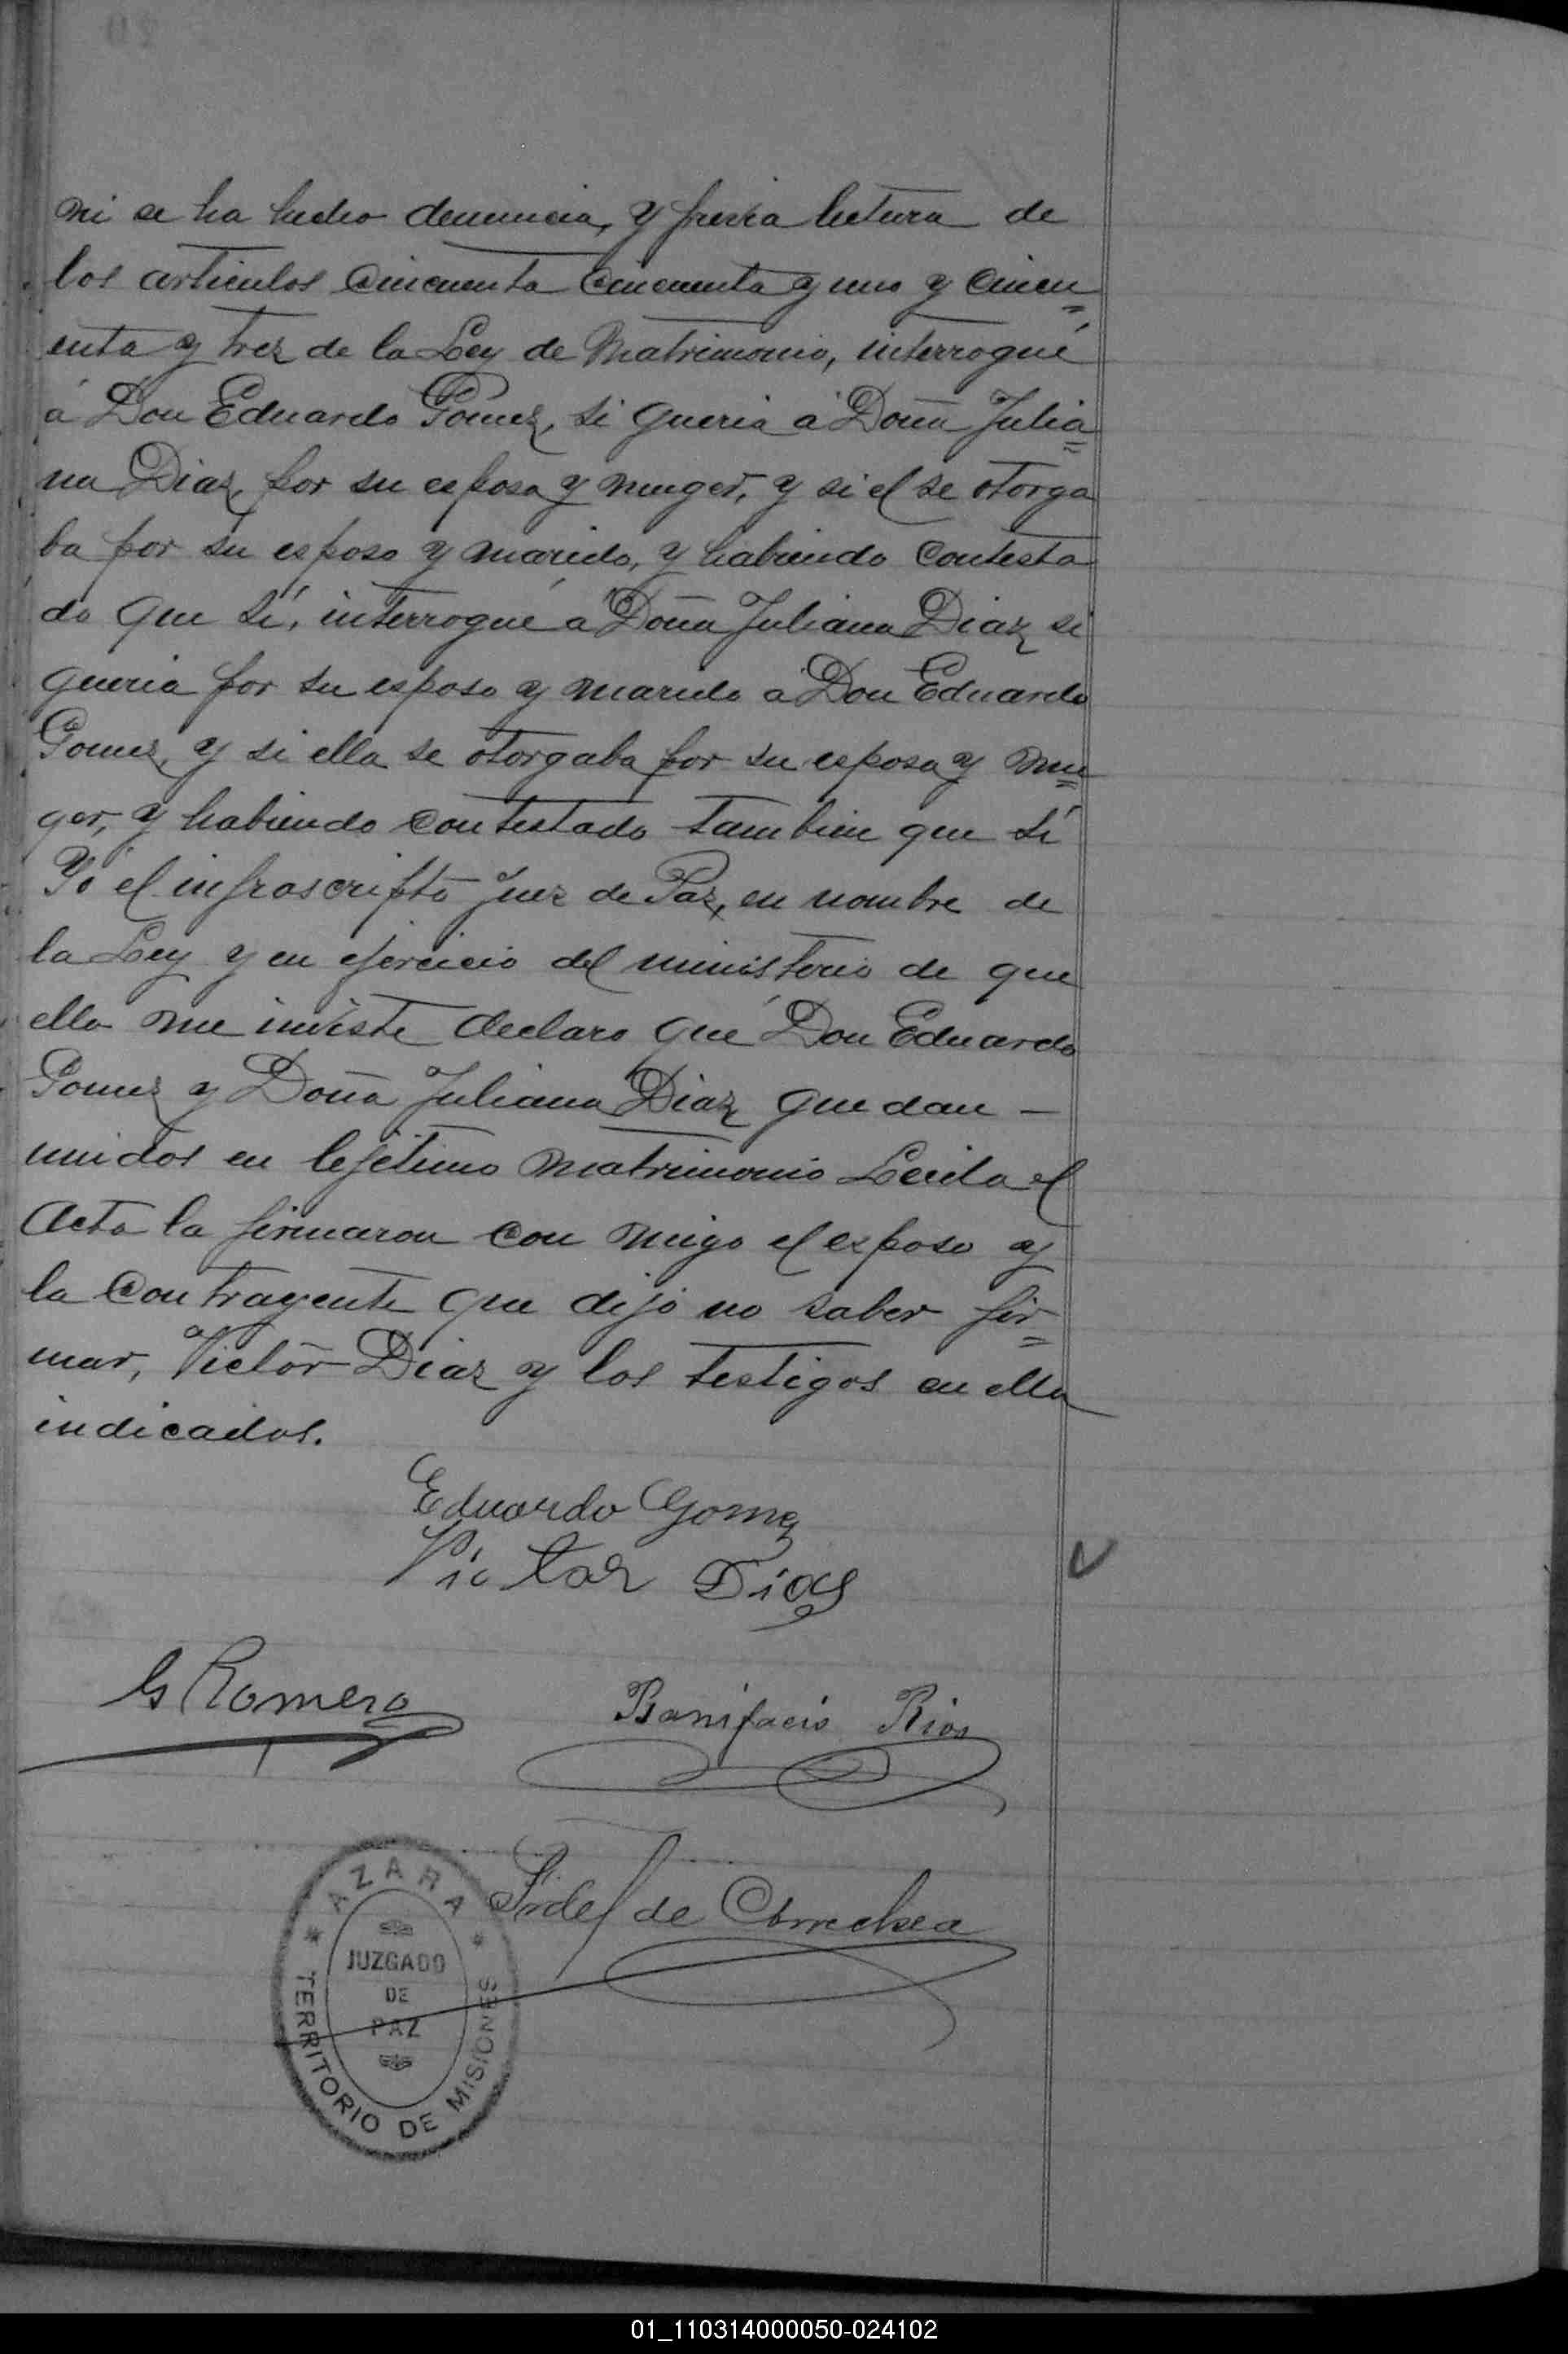 ni se ha hecho denuncia, y previa lectura de
los articulos cincuenta cincuenta y uno y cincu=
enta y trez de la Ley de Matrimonio, interrogué
á Don Eduardo Gomez, si queria á Doña Julia=
na Diaz, por su esposa y muger, y si el se otorga
ba por su esposo y marido, y habiendo contesta
do que sí, interrogué a Doña Juliana Diaz si
queria por su esposo y marido a Don Eduardo
Gomez, y si ella se otorgaba por su esposa y mu=
ger, y habiendo contestado tambien que sí
Yó el infrascripto Juez de Paz, en nombre de
la Ley y en ejercicio del ministerio de que
ella me inviste declaro qué Don Eduardo
Gomez y Doña Juliana Diaz quedan —
unidos en lejétimo matrimonio Leida el
Acta la firmaron con migo el esposo y
la contrayente que dijo no saber fir=
mar, Victor Diaz y los testigos en ella
indicados.
Eduardo Gomez
Victor Dias
G Romero
Banifacio Rios
Fidel de
* AZARA *
JUZGADO
DE
PAZ
TERRITORIO DE MISIONES
01_110314000050-024102